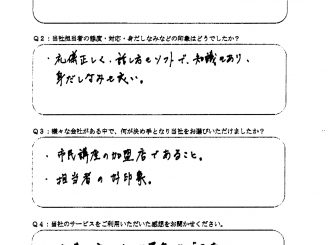 Q2：当社担当者の態度・対応・身だしなみなどの印象はどうでしたか？
・礼儀正しく、話し方もソフトで、知識もあり、
身だしなみも良い。
Q3：様々な会社がある中で、何が決め手となり当社をお選びいただけましたか？
・市民講座の加盟店であること。
・担当者の好印象。
Q4：当社のサービスをご利用いただいた感想をお聞かせください。